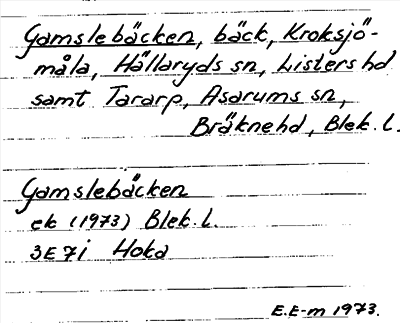 Gamslebäcken, bäck, Kroksjö-
måla, Hällaryds sn, Listers hd
samt Tararp, Asarums sn,
Bräknehd, Blek. l.
Gamslebäcken
ek (1973) Blek. l.
3E7i Hoka
E.E-m 1973.